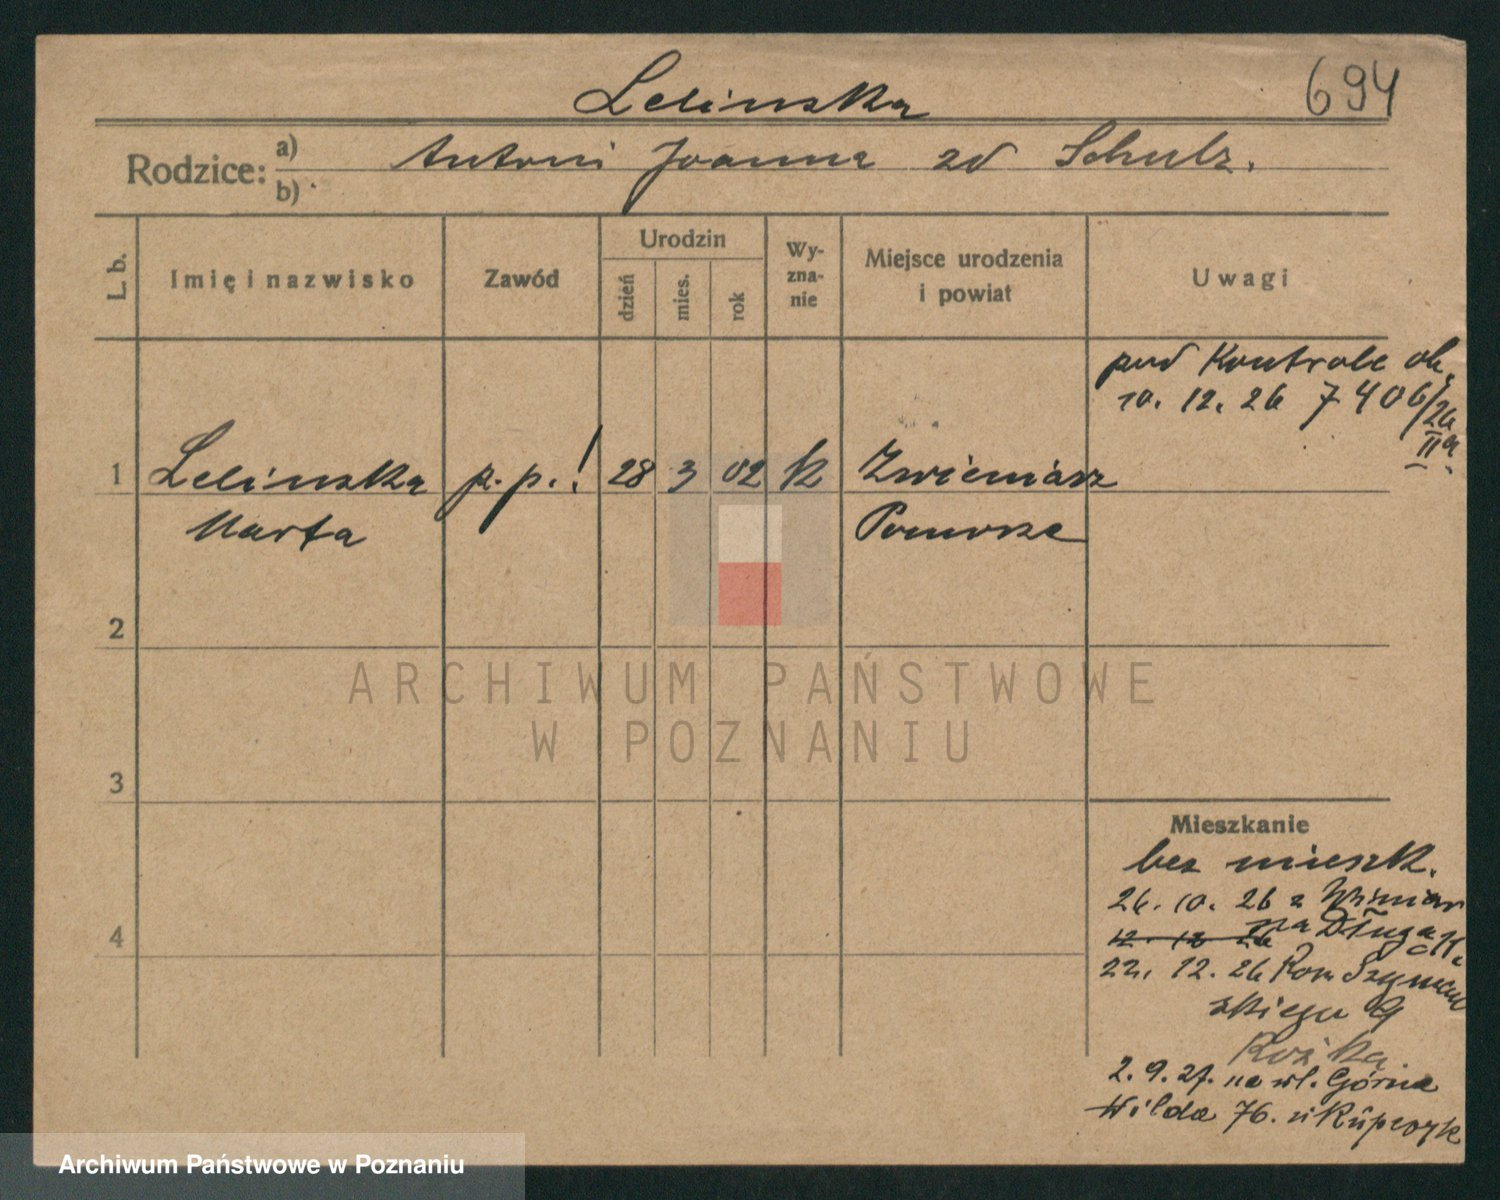 694
Lelinska
Rodzice: a) Antoni Joanna zd Schulz.
b)
L. b.
Imię i nazwisko
Zawód
Urodzin
dzień
mies.
rok
Wy-
zna-
nie
Miejsce urodzenia
i powiat
Uwagi
pod Kontrole ob.
10. 12. 26 7406/26
II a.
1 Lelinska p.p.! 28 3 02 k Zwieniasz
Marta Pomorze
2
3
4
Mieszkanie
bez mieszk.
26. 10. 26 z
12. 12 26 na Długą
22. 12. 26 Rom Szyman
skiego 9
2. 9. 27. na wł. Górna
Wilda 76. u Kupczyk
ARCHIWUM PAŃSTWOWE
W POZNANIU
Archiwum Państwowe w Poznaniu